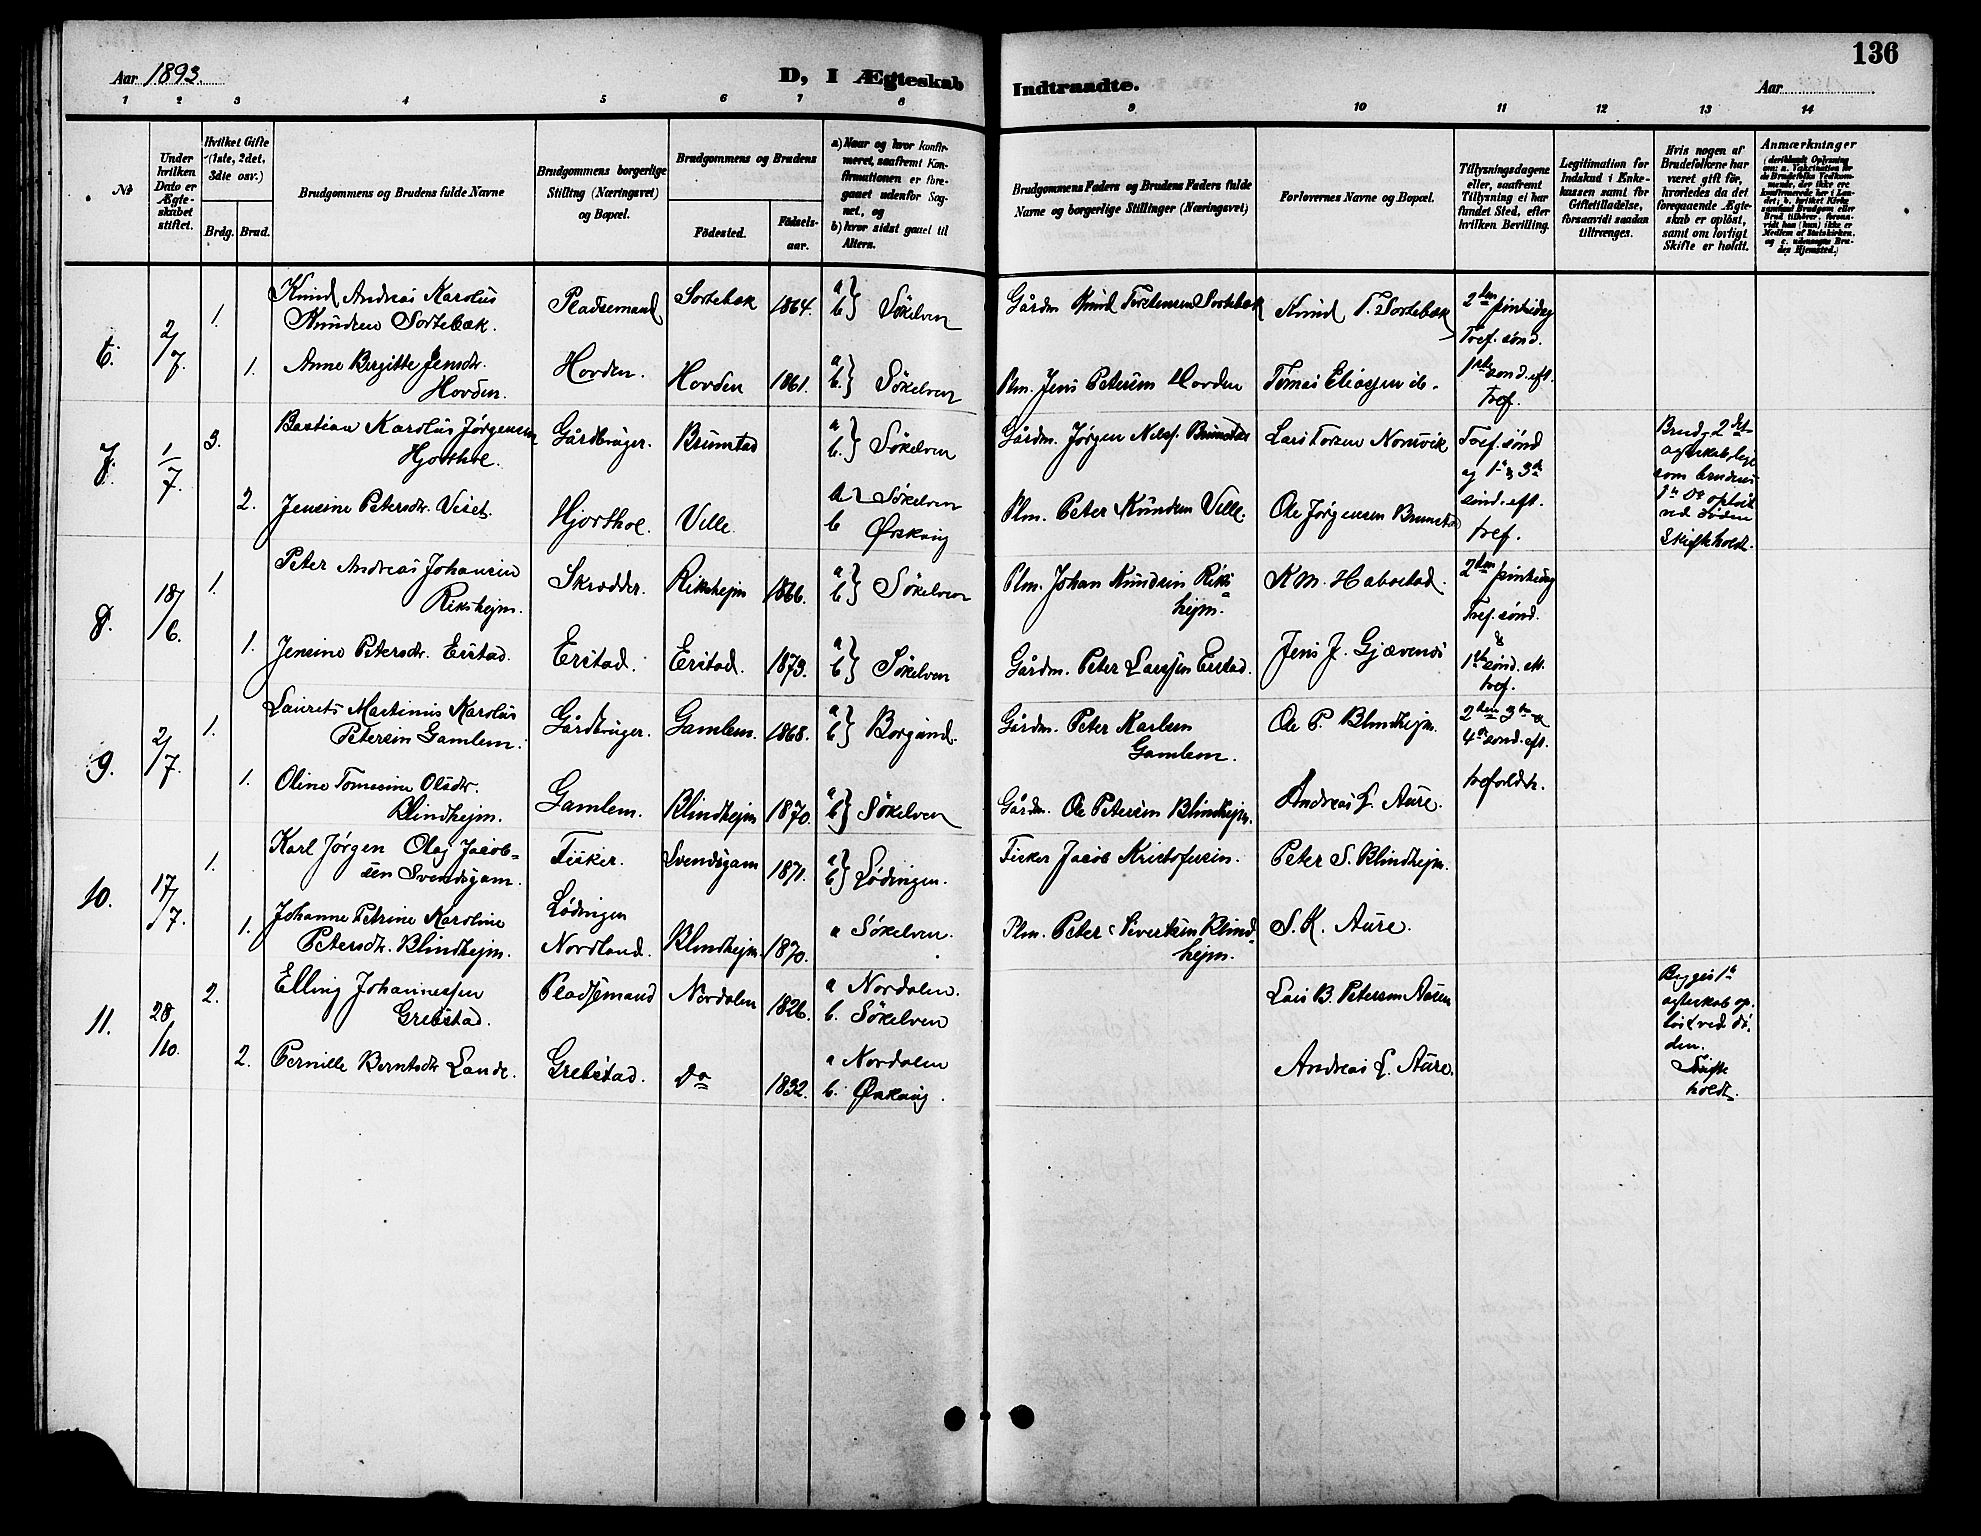 136
Aar 1893.
D, I Ægteskab Indtraadte.
Aar
1 2 3 4 5 6 7 8 9 10 11 12 13 14
No
Under hvilken Dato er Ægteskabet stiftet.
Hvilket Gifte (1ste, 2det, 3die osv.)
Brdg. Brud.
Brudgommens og Brudens fulde Navne
Brudgommens borgerlige Stilling (Næringsvei) og Bopæl.
Brudgommens og Brudens
Födested.
Födselsaar.
a) Naar og hvor konfirmeret, saafremt Konfirmationen er foregaaet udenfor Sognet, og
b) hvor sidst gaaet til Alters.
Brudgommens Faders og Brudens Faders fulde Navne og borgerlige Stillinger (Næringsvei)
Forlovernes Navne og Bopæl.
Tillysningsdagene eller, saafremt Tillysning ei har fundet Sted, efter hvilken Bevilling.
Legitimation for Indskud i Enkekassen samt for Giftetilladelse, forsaavidt saadan tiltrænges.
Hvis nogen af Brudefolkene har været gift för, hvorledes da det foregaaende Ægteskab er oplöst, samt om lovligt Skifte er holdt.
Anmærkninger
6. 2/7 1. Knud Andreas Karolus
Knudsen Sortebæk.
Pladsemand Sortebæk 1864. a b} Søkelven
Gårdm. Knud Torstensen Sortebæk
Knud T. Sortebæk
2den pintsedag
Tref. sønd.
1. Anne Birgitte Jensdtr.
Hovden.
Hovden. Hovden 1861. a b.} Søkelven
Plm. Jens Petersen Hovden
Tomas Eliassen ib.
1ste sønd. eft.
Tref.
7. 1/7. 3. Bastian Karolus Jørgensen
Hjorthol.
Gårdbruger. Brunstad a b.} Søkelven
Gårdm. Jørgen Nils. Brunstad
Tref. sønd
og 1ste & 3die
sønd. eft.
tref.
Bruds 2det
ved Døden
Skifte holdt.
2. Jensine Petersdtr. Viset.
Hjorthol. Velle. a Søkelven
b Ørskoug
Plm. Peter Knudsen Velle.
Ole Jørgensen Brunstad
8. 18/6. 1. Peter Andreas Johansen
Riksheim.
Skrædder. Riksheim 1866. a b} Søkelven
Plm. Johan Knudsen Riks
hejm.
K M. Habostad.
2den pintsedag
Tref. sønd.
&
1ste sønd. eft.
tref.
1. Jensine Petersdtr. Erstad.
Erstad. Erstad. 1873. a b} Søkelven
Gårdm. Peter Larssen Erstad.
Jens J. Gjævenes
9. 2/7. 1. Laurits Martinus Karolus
Petersen Gamlem.
Gårdbruger. Gamlem. 1868. a b} Borgund.
Gårdm. Peter Karlsen
Gamlem.
Ole P. Blindhejm.
2den 3die &
4de sønd. eft.
trefoldh.
1. Oline Tomine Olsdtr.
Blindhejm.
Gamlem. Blindhejm 1870. a b} Søkelven
Gårdm. Ole Petersen Blindhejm.
Andreas L. Aure.
10. 17/7. 1. Karl Jørgen Olag Jacob-
sen Svendsgam.
Fisker. Svendsgam 1871. a b} Lødingen.
Fisker Jacob Kristofersen.
Peter S. Blindhejm.
1. Johanne Petrine Karoline
Petersdtr. Blindhejm.
Lødingen
Nordland.
Blindhejm. 1870. a Søkelven.
Plm. Peter Sivertsen Blind-
hejm.
S. K. Aure.
11. 28/10. 2. Elling Johannessen
Grebstad.
Pladsemand Nordalen 1826. a Nordalen.
b. Søkelven
Lars B. Petersen Aasen
Begges 1ste
ægteskab op-
løst ved dø-
den.
Skifte
holdt.
2. Pernille Berntsdtr Lande.
Grebstad. Do 1832. a Nordalen
b. Ørskoug.
Andreas L. Aure.